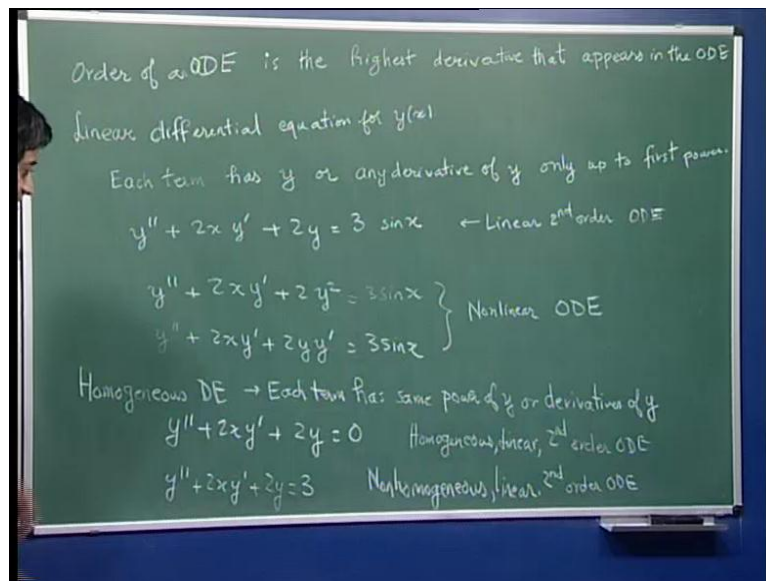 Order of a ODE is the highest derivative that appears in the ODE
Linear differential equation for y(x)
Each term has y or any derivative of y only up to first power.
y'' + 2x y' + 2y = 3 sinx ← Linear 2nd order ODE
y'' + 2xy' + 2y² = 3sinx
Nonlinear ODE
y'' + 2xy' + 2yy' = 3sinx
Homogeneous DE → Each term has same power of y or derivatives of y
y'' + 2xy' + 2y = 0 Homogeneous, linear, 2nd order ODE
y'' + 2xy' + 2y = 3 Nonhomogeneous, linear, 2nd order ODE